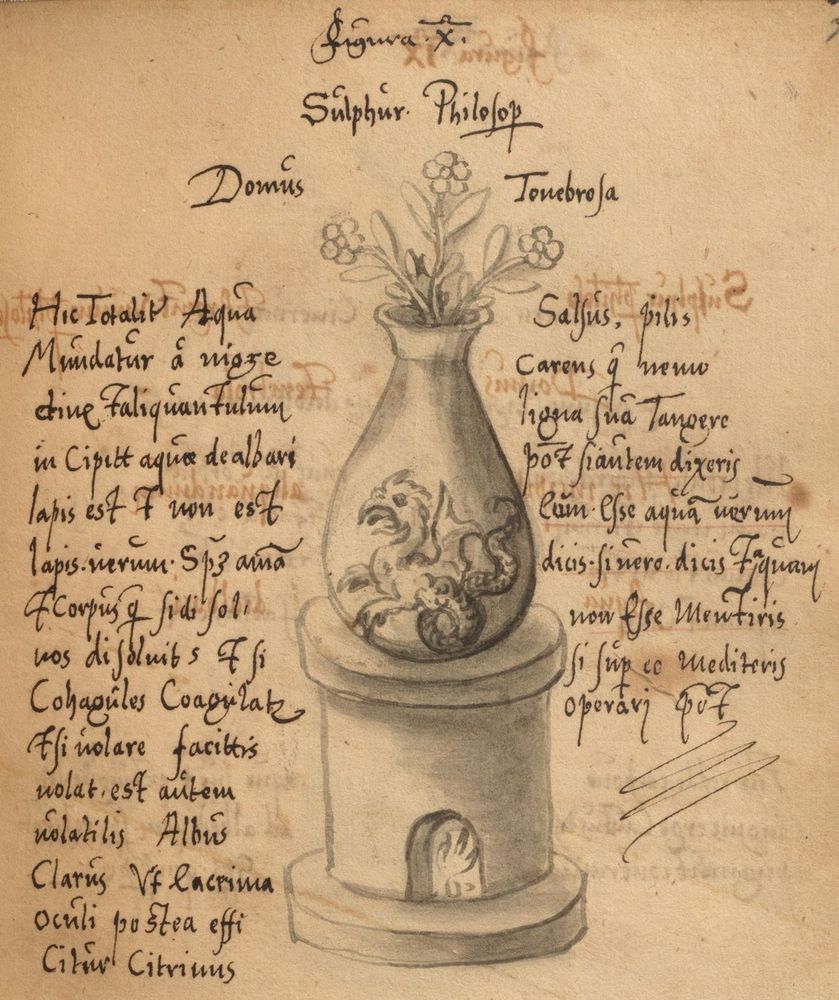 Figura. X.
Sulphur. Philosop
Domus
Tenebrosa
Hic Totalit Aqua
Mundatur á nigre
dine & aliquantulum
in Cipitt aquæ dealbari
lapis est & non est
lapis. verum. Spʒ amā
& Corpus q̄ si di sol.
vos disolvit s & si
Cohagules Coagulatʒ
& si volare facittis
volat. est autem
volatilis Albus
Clarus Vt lacrima
Oculi postea effi
Citur Citrinus
Salsus, pilis
Carens q̄ nemo
ligna suā Tangere
pōt si autem dixeris
Eum. Esse aquā verum
dicis. si vero. dicis &
non Esse Mentiris
si sup eo Mediteris
operari pōt